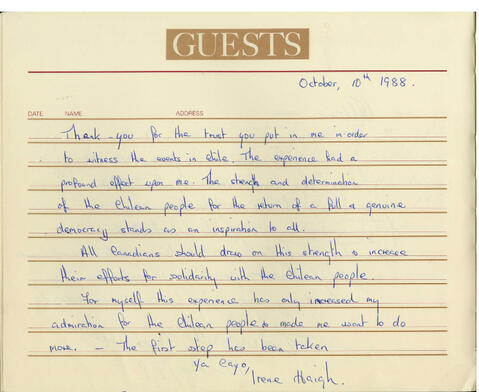 GUESTS
October, 10th 1988.
DATE NAME ADDRESS
Thank-you for the trust you put in me in order
to witness the events in Chile. The experience had a
profound effect upon me. The strength and determination
of the Chilean people for the return of a full & genuine
democracy stands as an inspiration to all.
All Canadians should draw on this strength to increase
their efforts for solidarity with the Chilean people.
For myself this experience has only increased my
admiration for the Chilean people & made me want to do
more. - The first step has been taken
Ya Cayo,
Irene Haigh.